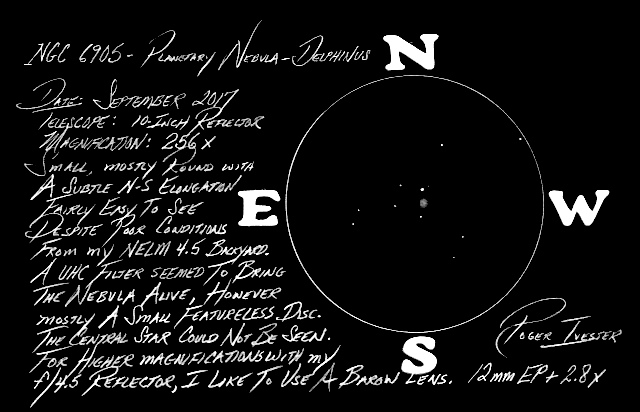 NGC 6905 - Planetary Nebula - Delphinus
N
Date: September 2017
Telescope: 10-Inch Reflector
Magnification: 256 x
Small, mostly Round with
A Subtle N-S Elongation
Fairly Easy To See
Despite Poor Conditions
From my NELM 4.5 Backyard.
A UHC Filter seemed To Bring
The Nebula Alive, However
mostly A Small Featureless Disc.
The Central Star Could Not Be Seen.
For Higher magnifications with my
f/4.5 Reflector, I Like To Use A Barow Lens. 12mm EP + 2.8x
E
W
S
Roger Ivester